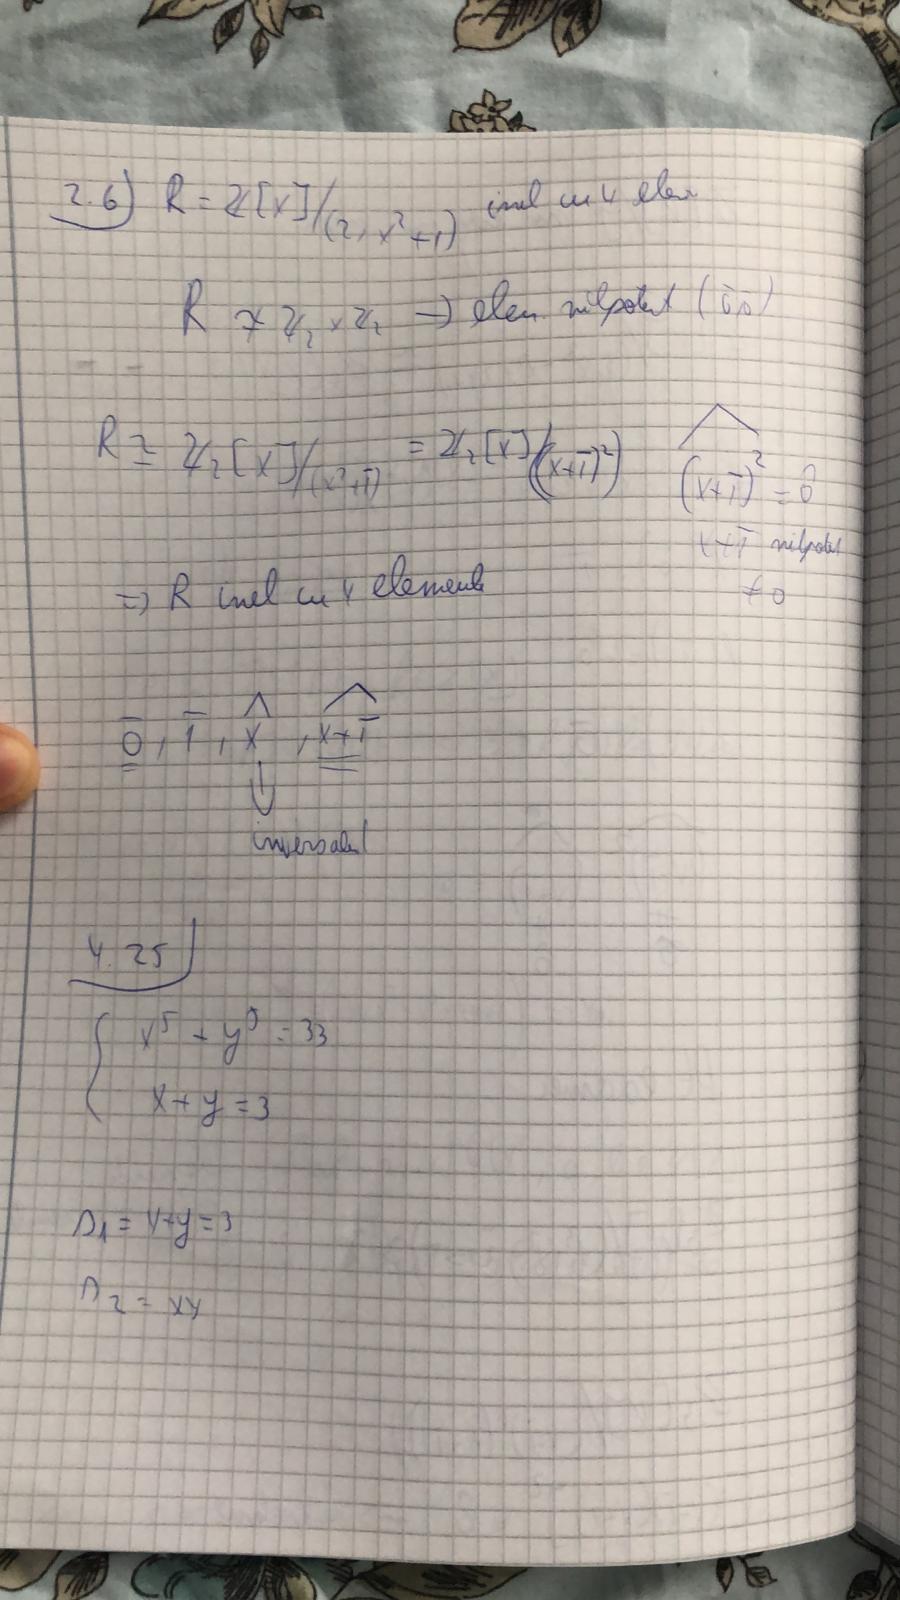 2.6) R = ℤ[X]/(2, x²+1) inel cu 4 elem
R ≄ ℤ₂ × ℤ₂ → elem. nilpotent (0̄,0̄)
R ≃ ℤ₂[X]/(x²+1̄) = ℤ₂[X]/((x+1̄)²)
(x+1̄)² = 0̂
x+1̄ nilpotent
≠ 0
⇒ R inel cu 4 elemente
0̄, 1̄, x̂, x+1̄
↓
inversabil
4.25
{ x⁵ + y⁵ = 33
x + y = 3
s₁ = x+y = 3
s₂ = xy